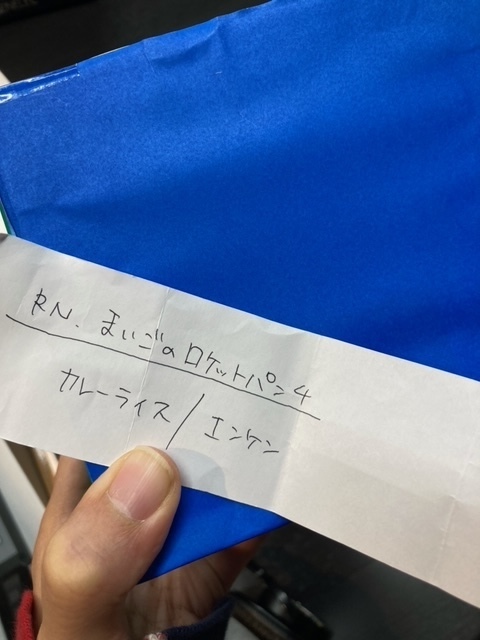 RN. まいごのロケットパン4
カレーライス/エンケン